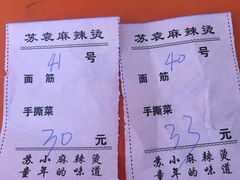 苏袁麻辣烫
41 号
面筋
手撕菜
30 元
苏小麻辣烫
童年的味道
苏袁麻辣烫
40 号
面筋
手撕菜
33 元
苏小麻辣烫
童年的味道